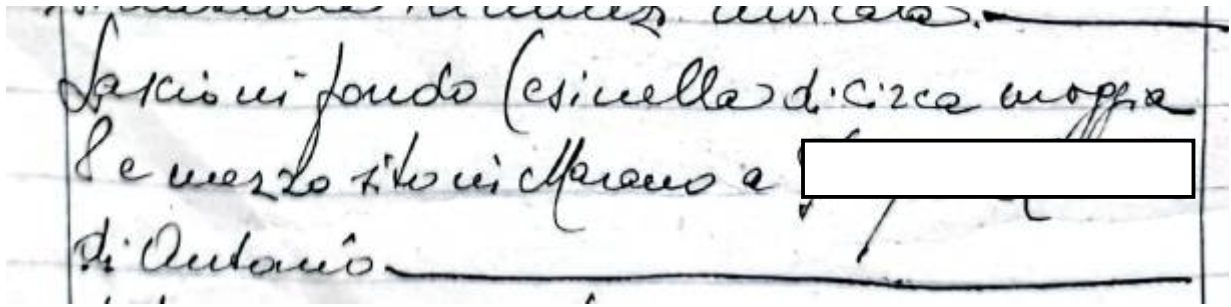 Lascio il fondo Cesinella di circa moggia
8 e mezzo sito in Marano a
di Antonio